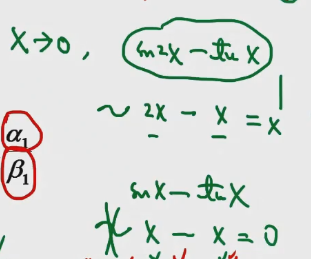 X→0, sin2X − tan X
~ 2X − X = X
α₁
β₁
sinX − tanX
≁ X − X = 0